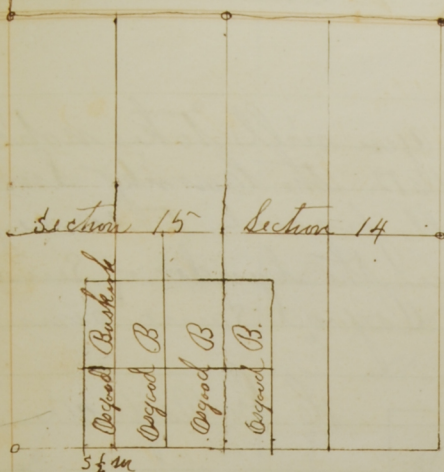 Section 15
Section 14
Osgood Buskirk
Osgood B
Osgood B
Osgood B.
S ½ M